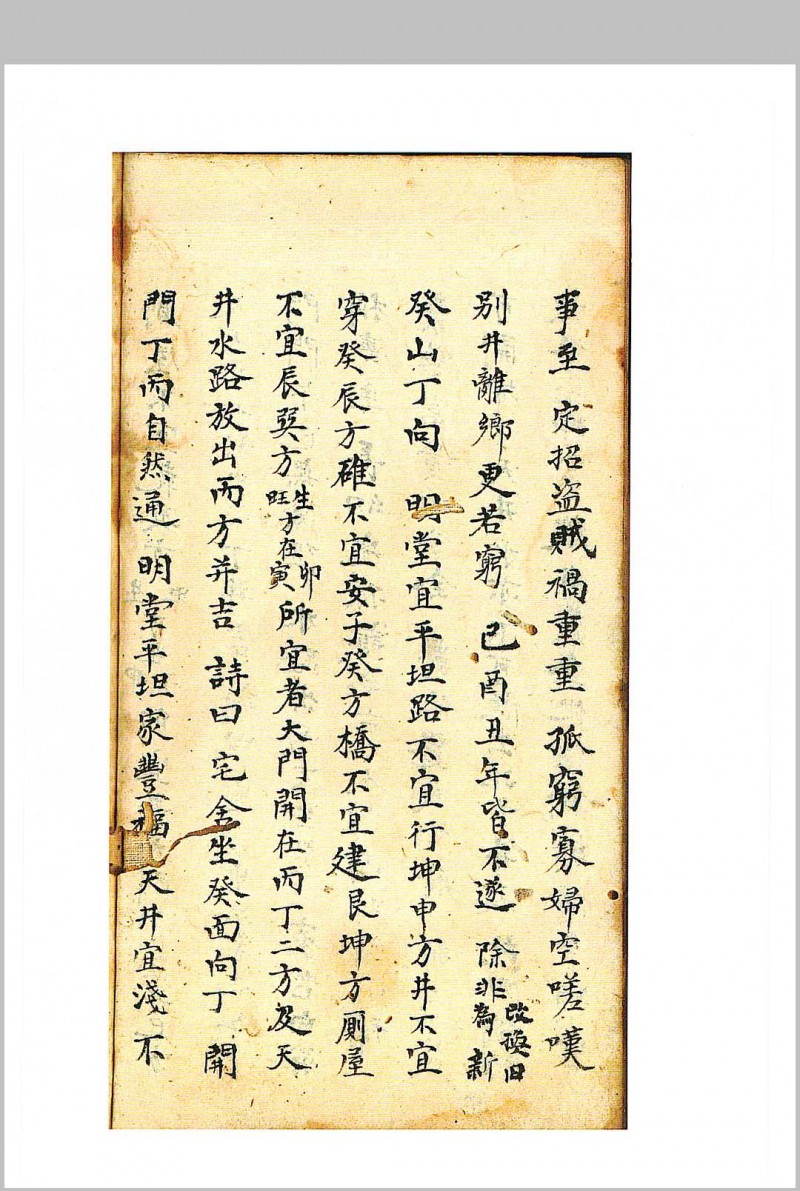 事至 定招盜賊禍重重 孤窮寡婦空嗟嘆
別井離鄉更若窮 已酉丑年皆不遂 除非改換旧為新
癸山丁向 明堂宜平坦路不宜行坤申方井不宜
穿癸辰方碓不宜安子癸方橋不宜建艮坤方厠屋
不宜辰巽方生旺方在卯寅所宜者大門開在丙丁二方及天
井水路放出丙方并吉 詩曰 宅舍坐癸面向丁 開
門丁丙自然通 明堂平坦家豐福 天井宜淺不